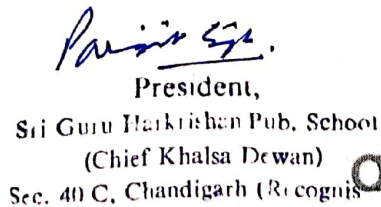 President,
Sri Guru Harkrishan Pub. School
(Chief Khalsa Dewan)
Sec. 40 C, Chandigarh (Recognis